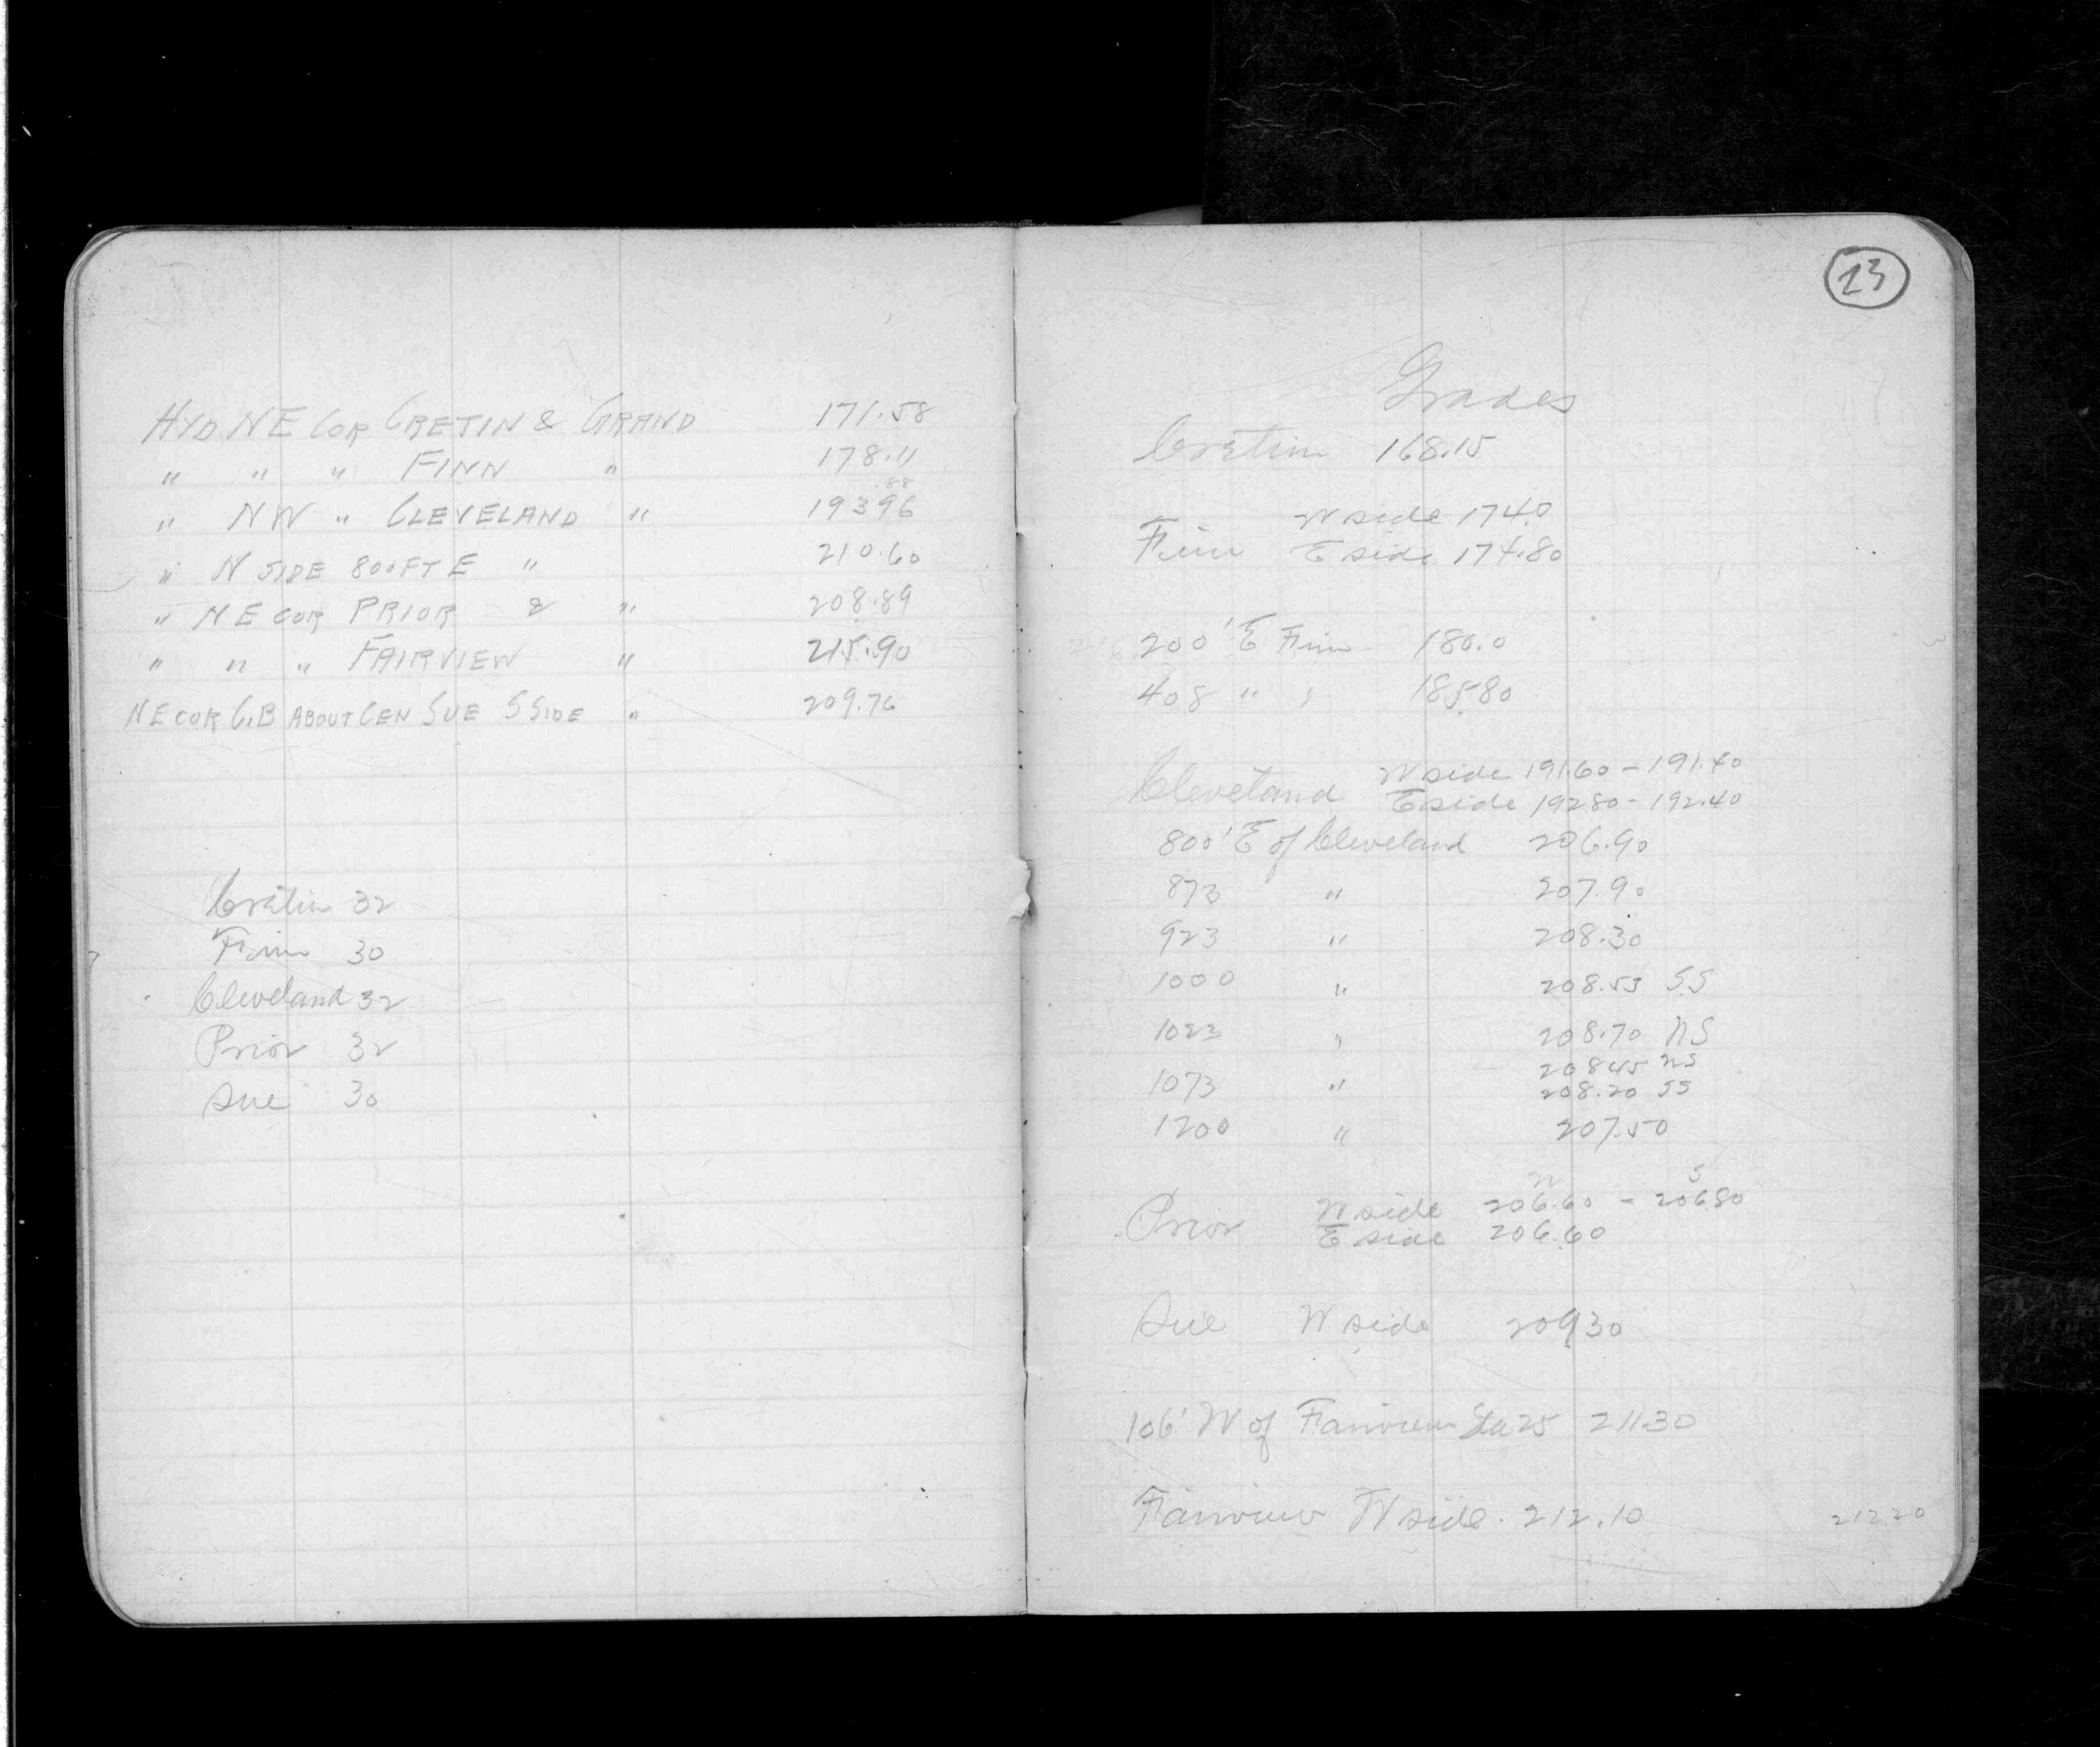 HYD NE COR CRETIN & GRAND 171.58
" " " FINN " 178.11
.88
" NW " CLEVELAND " 193 96
" N SIDE 800 FT E " 210.60
" NE COR PRIOR & " 208.89
" " " FAIRVIEW " 215.90
NE COR C.B ABOUT CEN SUE S SIDE " 209.76
Cretin 32
Finn 30
Cleveland 32
Prior 32
Sue 30
23
Grades
Cretin 168.15
W side 174.0
Finn E side 174.80
200' E Finn 180.0
408 " " 185.80
W side 191.60 - 191.40
Cleveland E side 192 80 - 192.40
800' E of Cleveland 206.90
873 " 207.90
923 " 208.30
1000 " 208.53 SS
1023 " 208.70 NS
208 45 NS
1073 " 208.20 SS
1200 " 207.50
N S
W side 206.60 - 206 80
Prior E side 206.60
Sue W side 209 30
106' W of Fairview Sta 25 211.30
Fairview W side. 212.10 212.20